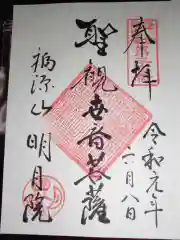 奉拝
令和元年
六月八日
聖観世音菩薩
福源山 明月院